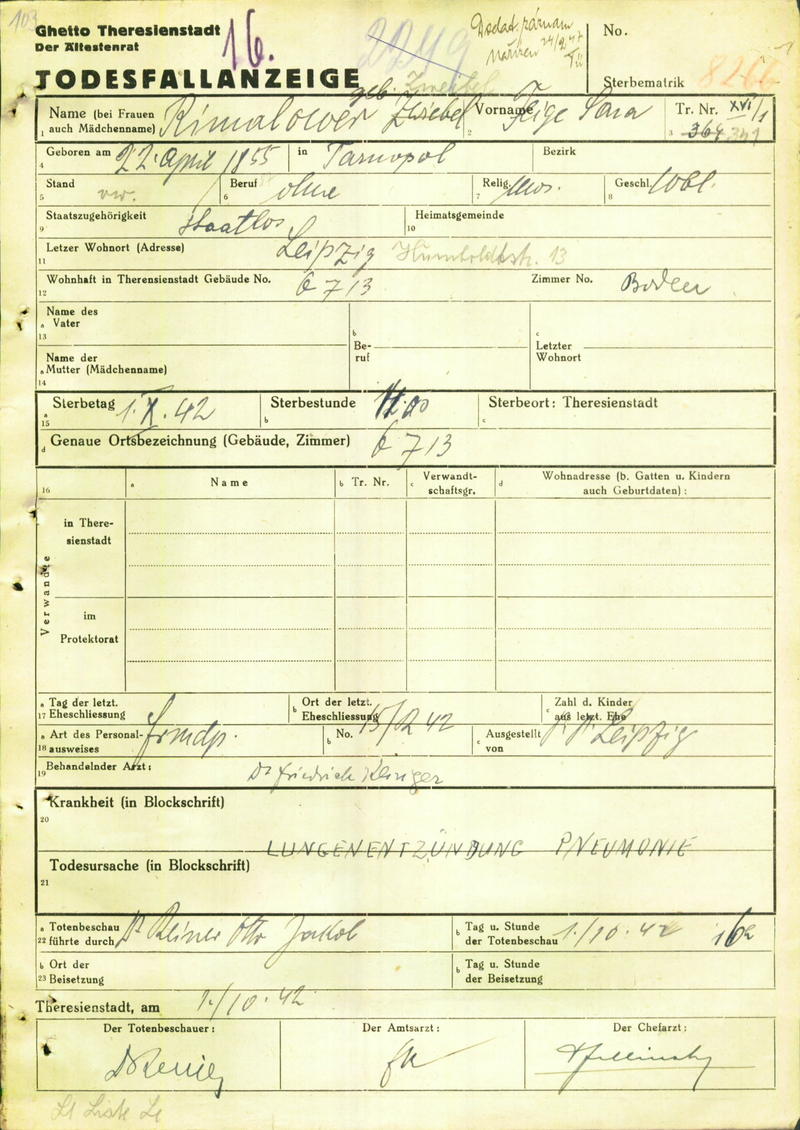 103
Ghetto Theresienstadt
Der Ältestenrat
16.
2249
TODESFALLANZEIGE
No.
Sterbematrik
geb. Zwiebel
Name (bei Frauen
1 auch Mädchenname)
Rimalower
Vorname
2
Feige Sara
Tr. Nr.
3
XVI/1
364
Geboren am
4
22. April 1855
in
Tarnopol
Bezirk
Stand
5
vw.
Beruf
6
ohne
Relig.
7
mos.
Geschl.
8
wbl.
Staatszugehörigkeit
9
staatlos
Heimatsgemeinde
10
Letzer Wohnort (Adresse)
11
Leipzig Humboldtstr. 13
Wohnhaft in Therensienstadt Gebäude No.
12
L 713
Zimmer No.
Boden
Name des
a Vater
13
Name der
a Mutter (Mädchenname)
14
b
Be-
ruf
c
Letzter
Wohnort
a Sterbetag
15
1. X. 42
Sterbestunde
b
Sterbeort: Theresienstadt
c
Genaue Ortsbezeichnung (Gebäude, Zimmer)
d
L 713
16
a Name
b Tr. Nr.
c Verwandt-
schaftsgr.
d Wohnadresse (b. Gatten u. Kindern
auch Geburtdaten) :
Verwandte
in There-
sienstadt
im
Protektorat
a Tag der letzt.
17 Eheschliessung
b Ort der letzt.
Eheschliessung
c Zahl d. Kinder
aus letzt. Ehe
a Art des Personal-
18 ausweises
b No.
15/2 42
c Ausgestellt
von
Leipzig
Behandelnder Arzt :
19
Dr Friedrich Klinger
Krankheit (in Blockschrift)
20
LUNGENENTZÜNDUNG PNEUMONIE
Todesursache (in Blockschrift)
21
a Totenbeschau
22 führte durch
Dr Reiner Otto Jakob
b Tag u. Stunde
der Totenbeschau
1./10. 42
16h
b Ort der
23 Beisetzung
b Tag u. Stunde
der Beisetzung
Theresienstadt, am
1./10. 42
Der Totenbeschauer :
Der Amtsarzt :
Der Chefarzt :